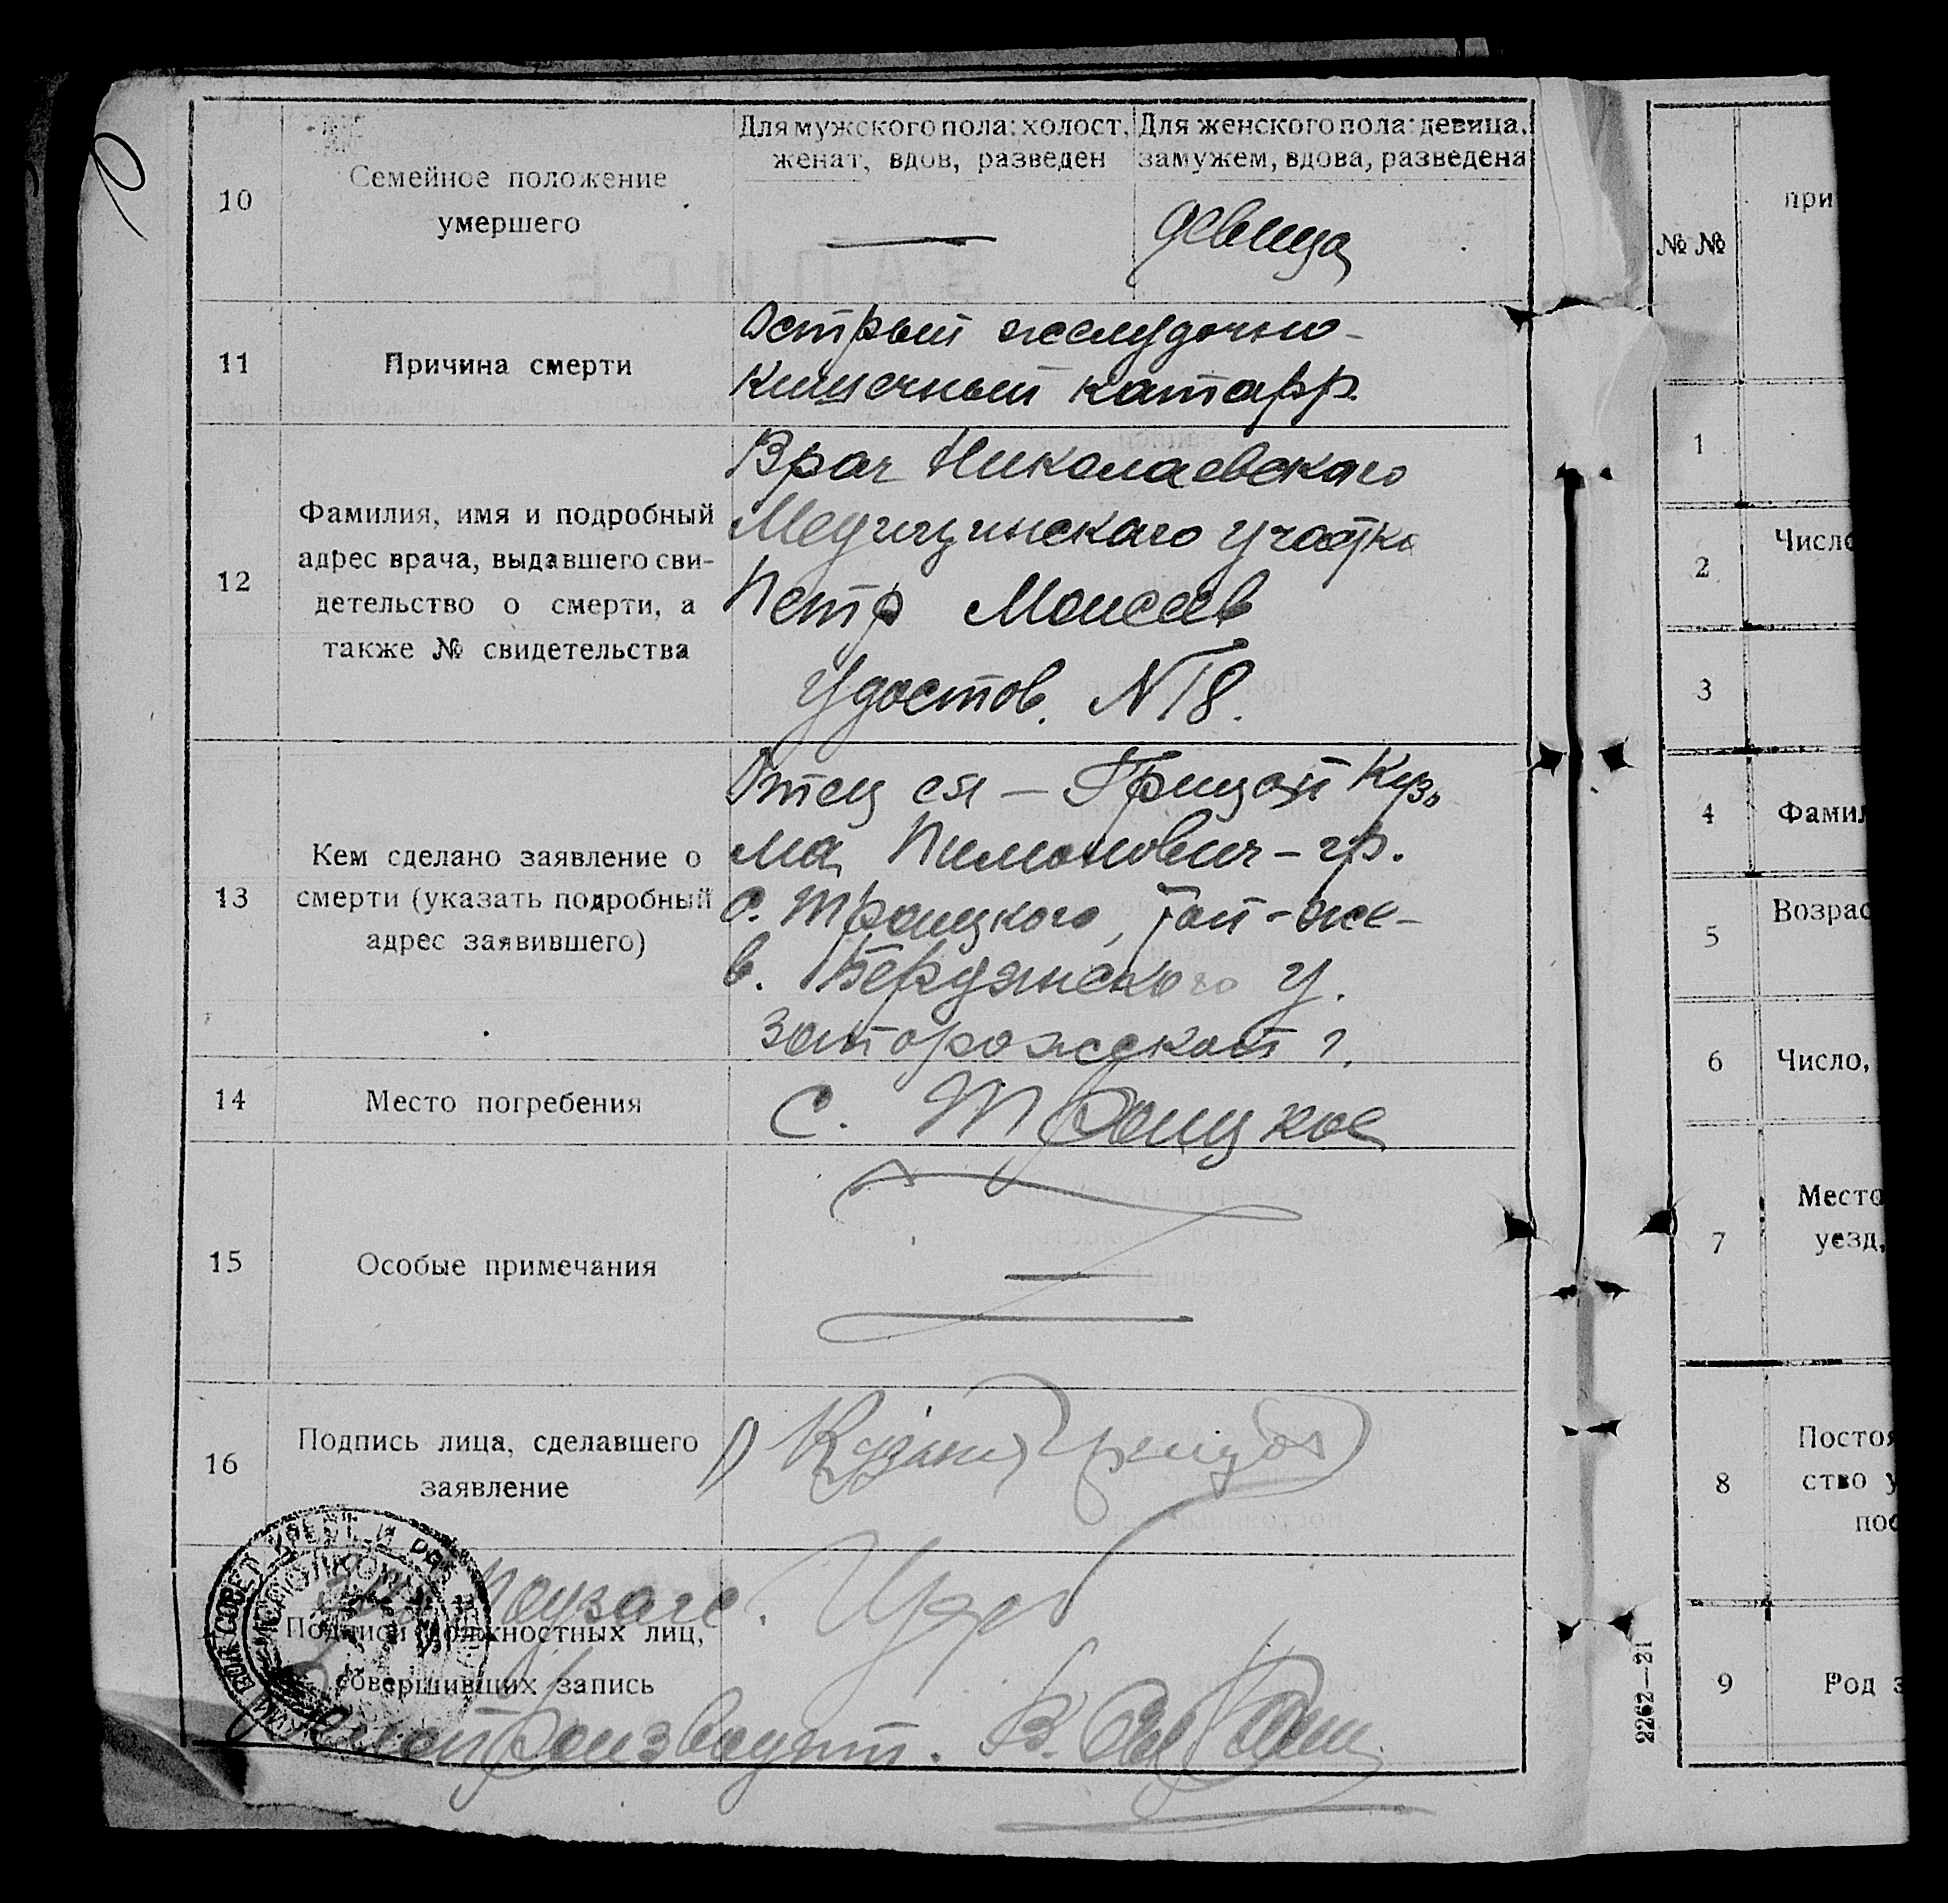 10
10
Семейное положение
умершего
Для мужского пола: холост,
женат, вдов, разведен
Для женского пола: девица,
замужем, вдова, разведена
девица
11
Причина смерти
Острый желудочно-
кишечный катарр.
12
Фамилия, имя и подробный
адрес врача, выдавшего сви-
детельство о смерти, а
также № свидетельства
Врач Николаевского
Медицинского участка
Петр Моисеев
Удостов. N 18.
13
Кем сделано заявление о
смерти (указать подробный
адрес заявившего)
Отец ея – Грицай Кузь
ма Пимонович – гр.
С. Троицкого, той-же-
в. Бердянского у.
Запорожской г.
14
Место погребения
С. Троицкое
15
Особые примечания
16
Подпись лица, сделавшего
заявление
1) Кузьма Грицай
Подписи должностных лиц,
совершивших запись
Зав. Подзагс.
Делопроизводит. В.
№ №
при
1
2
Число
3
4
Фамил
5
Возрас
6
Число,
7
Место
уезд,
8
Постоя
ство у
пос
9
Род з
2262—21